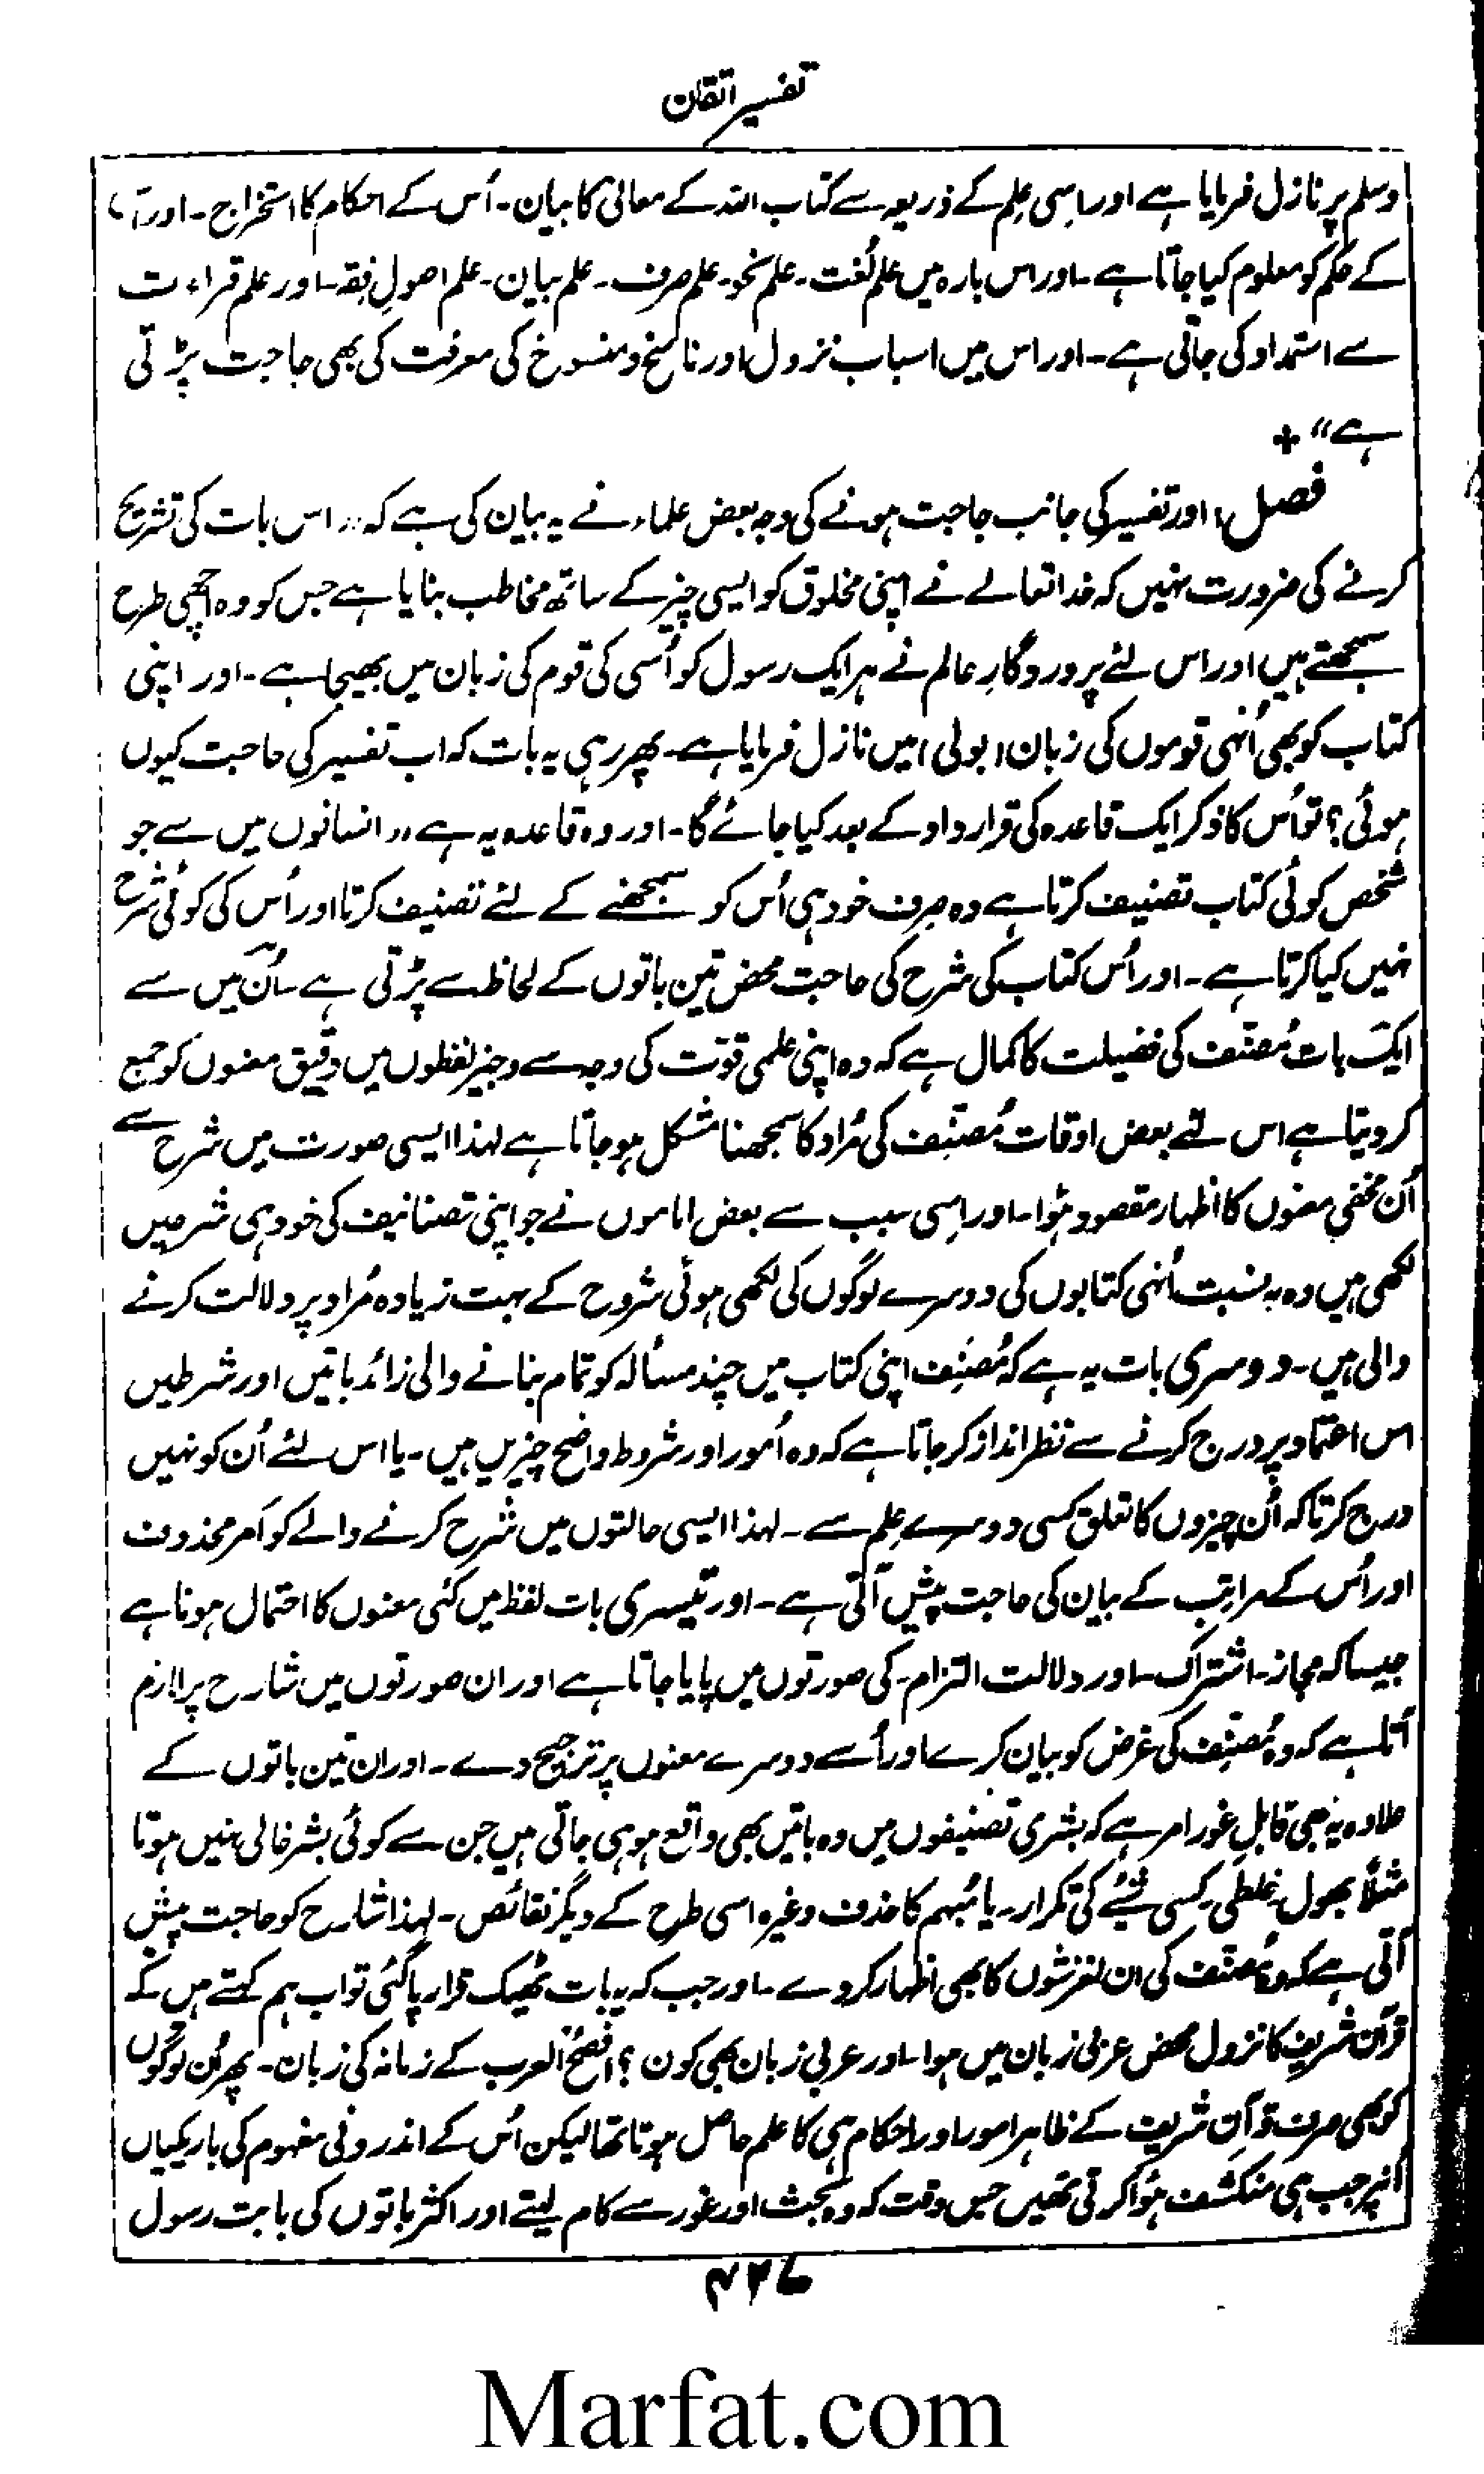 تفسیر اتقان
وسلم پر نازل فرمایا ہے اور اسی علم کے ذریعہ سے کتاب اللہ کے معانی کا بیان۔ اُس کے احکام کا استخراج۔ اور
کے حکم کو معلوم کیا جاتا ہے۔ اور اس بارہ میں علم لُغت۔ علم نحو۔ علم صرف۔ علم بیان۔ علم اصولِ فِقہ۔ اور علم قراءت
سے استمداد کی جاتی ہے۔ اور اس میں اسباب نزول اور ناسخ و منسوخ کی معرفت کی بھی حاجت پڑتی
ہے" +
فصل، اور تفسیر کی جانب حاجت ہونے کی وجہ بعض علماء نے یہ بیان کی ہے کہ "اس بات کی تشریح
کرنے کی ضرورت نہیں کہ خدا تعالےٰ نے اپنی مخلوق کو ایسی چیز کے ساتھ مخاطب بنایا ہے جس کو وہ اچھی طرح
سمجھتے ہیں اور اس لئے پروردگارِ عالم نے ہر ایک رسول کو اُسی کی قوم کی زبان میں بھیجا ہے۔ اور اپنی
کتاب کو بھی اُنہی قوموں کی زبان (بولی) میں نازل فرمایا ہے۔ پھر رہی یہ بات کہ اب تفسیر کی حاجت کیوں
ہوئی؟ تو اُس کا ذکر ایک قاعدہ کی قرار داد کے بعد کیا جائے گا۔ اور وہ قاعدہ یہ ہے "انسانوں میں سے جو
شخص کوئی کتاب تصنیف کرتا ہے وہ صرف خود ہی اُس کو سمجھنے کے لئے تصنیف کرتا اور اُس کی کوئی شرح
نہیں کیا کرتا ہے۔ اور اُس کتاب کی شرح کی حاجت محض تین باتوں کے لحاظ سے پڑتی ہے۔ اُن میں سے
ایک بات مُصنّف کی فضیلت کا کمال ہے کہ وہ اپنی علمی قوّت کی وجہ سے وجیز لفظوں میں دقیق معنوں کو جمع
کر دیتا ہے اس لئے بعض اوقات مُصنّف کی مُراد کا سمجھنا مشکل ہو جاتا ہے لہذا ایسی صورت میں شرح سے
اُن مخفی معنوں کا اظہار مقصود ہُوا۔ اور اِسی سبب سے بعض اماموں نے جو اپنی تصنانیف کی خود ہی شرحیں
لکھی ہیں وہ بہ نسبت اُنہی کتابوں کی دوسرے لوگوں کی لکھی ہوئی شروح کے بہت زیادہ مُراد پر دلالت کرنے
والی ہیں۔ دوسری بات یہ ہے کہ مُصنِف اپنی کتاب میں چند مسألہ کو تمام بنانے والی زائد باتیں اور شرطیں
اس اعتماد پر درج کرنے سے نظر انداز کر جاتا ہے کہ وہ اُمور اور شروط واضح چیزیں ہیں۔ یا اس لئے اُن کو نہیں
درج کرتا کہ اُن چیزوں کا تعلق کسی دوسرے علِم سے۔ لہذا ایسی حالتوں میں شرح کرنے والے کو اَمر محذوف
اور اُس کے مراتب کے بیان کی حاجت پیش آتی ہے۔ اور تیسری بات لفظ میں کئی معنوں کا احتمال ہونا ہے
جیسا کہ مجاز۔ اشتراک۔ اور دلالت التزام۔ کی صورتوں میں پایا جاتا ہے اور ان صورتوں میں شارح پر لازم
آتا ہے کہ وہ مُصنّف کی غرض کو بیان کرے اور اُسے دوسرے معنوں پر ترجیح دے۔ اور ان تین باتوں کے
علاوہ یہ بھی قابل غور امر ہے کہ بشری تصنیفوں میں وہ باتیں بھی واقع ہو ہی جاتی ہیں جن سے کوئی بشر خالی نہیں ہوتا
مثلاً بھول۔ غلطی۔ کسی شئے کی تکرار۔ یا مُبہم کا حذف وغیرہ اسی طرح کے دیگر نقائص۔ لہذا شارح کو حاجت پیش
آتی ہے کہ وہ مُصنّف کی ان لغزشوں کا بھی اظہار کر دے۔ اور جب کہ یہ بات ٹھیک قرار پا گئی تو اب ہم کہتے ہیں کہ
قرآن شریف کا نزول محض عربی زبان میں ہوا۔ اور عربی زبان بھی کون؟ افصح العرب کے زمانہ کی زبان۔ پھر اُن لوگوں
کو بھی صرف قرآن شریف کے ظاہر امور اور احکام ہی کا علم حاصل ہوتا تھا لیکن اُس کے اندرونی مفہوم کی باریکیاں
اُنپر جب ہی منکشف ہُوا کرتی تھیں جس وقت کہ وہ بحث اور غور سے کام لیتے اور اکثر باتوں کی بابت رسول
Marfat.com